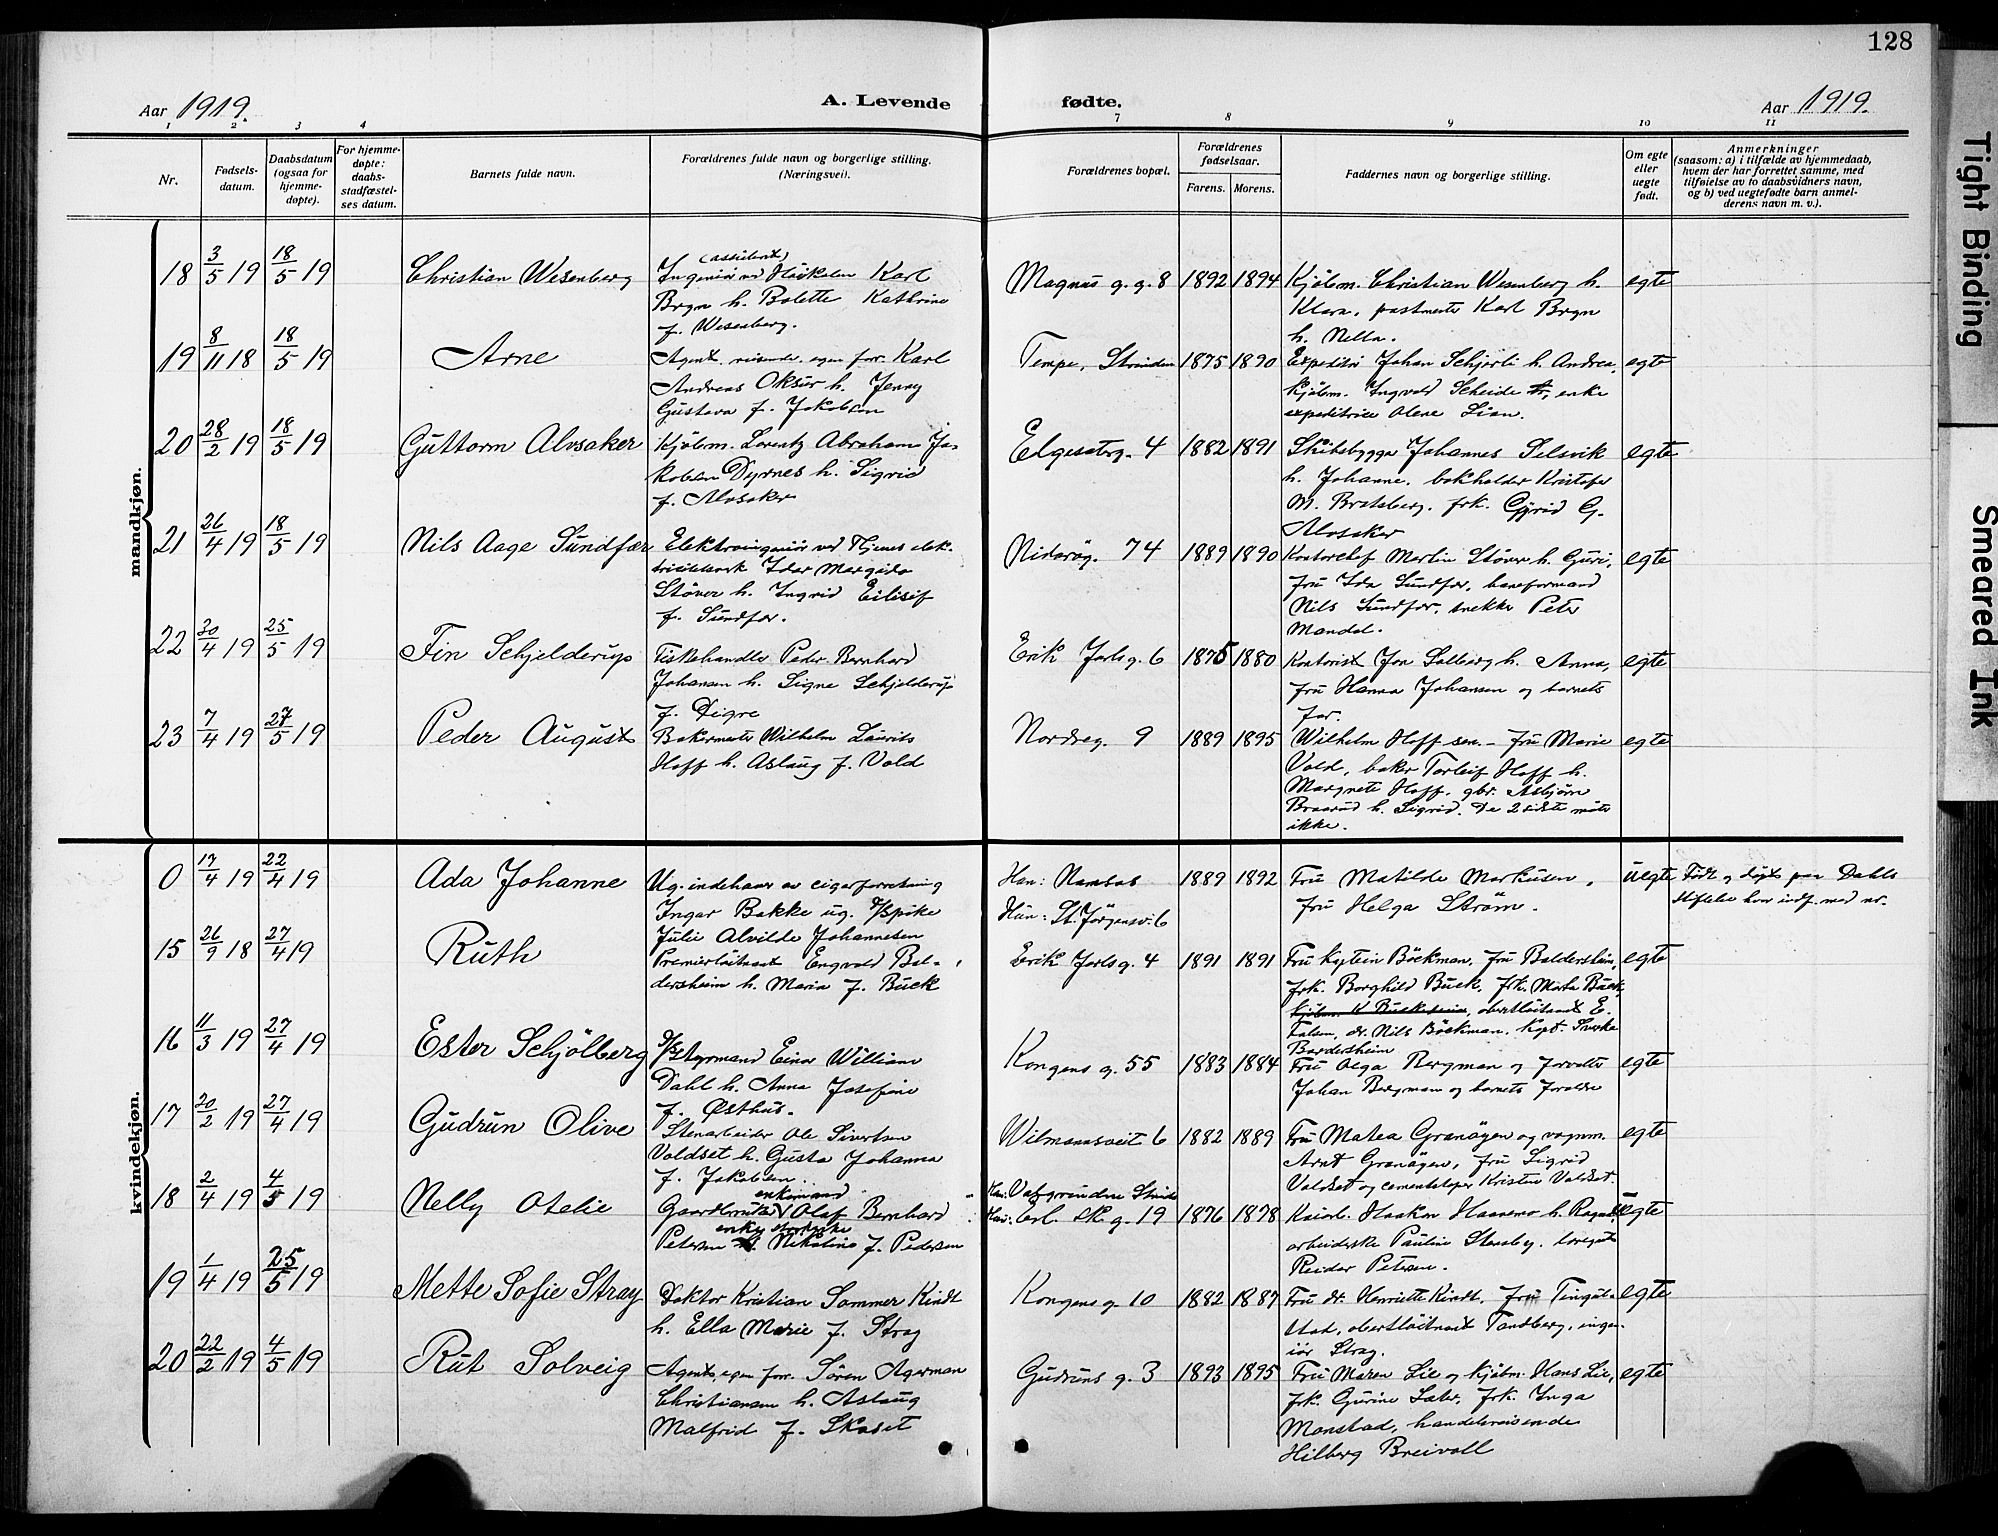 128
Aar 1919.
A. Levende
fødte.
Aar 1919.
1 2 3 4
7 8 9 10 11
Nr.
Fødsels-
datum.
Daabsdatum
(ogsaa for
hjemme-
døpte).
For hjemme-
døpte:
daabs-
stadfæstel-
ses datum.
Barnets fulde navn.
Forældrenes fulde navn og borgerlige stilling.
(Næringsvei).
Forældrenes bopæl.
Forældrenes
fødselsaar.
Farens.
Morens.
Faddernes navn og borgerlige stilling.
Om egte
eller
uegte
født.
Anmerkninger
(saasom: a) i tilfælde av hjemmedaab,
hvem der har forrettet samme, med
tilføielse av to daabsvidners navn,
og b) ved uegtefødte barn anmel-
derens navn m. v.).
mandkjøn.
18 3/5 19 18/5 19 Christian Wesenberg
(assistent)
Ingeniør ved Høiskolen Karl
Bryn h. Bolette Kathrine
f. Wesenberg.
Magnus g. g. 8 1892 1894
Kjøbm. Christian Wesenberg h.
Klara, postmester Karl Bryn
h. Nella.
egte
19 8/11 18 18/5 19 Arne
Agent, reisende, egen forr. Karl
Andreas Oksør h. Jenny
Gustava f. Jakobsen
Tempe, Strinden 1875 1890
Expeditør Johan Schjerli h. Andrea,
kjøbm. Ingvald Scheide, enke
expeditrice Olene Lian.
egte
20 28/2 19 18/5 19 Guttorm Alvsaker
Kjøbm. Lorentz Abraham Ja-
kobsen Dyrnes h. Sigrid
f. Alvsaker
Elgesæterg. 4 1882 1891
Skibsbygger Johannes Selsvik
h. Johanne, bokholder Kristofer
M. Bratsberg, frk. Gjyrid G.
Alvsaker
egte
21 26/4 19 18/5 19 Nils Aage Sundfær
Elektroingeniør ved Thjems elek-
tricitetsverk Idar Margido
Støver h. Ingrid Eilisif
f. Sundfær.
Nidarög. 74 1889 1890
Kontorchef Martin Støver h. Guri,
fru Ida Sundfær, baneformand
Nils Sundfær, snekker Peter
Mandal.
egte
22 30/4 19 25/5 19 Fin Schjelderup
Fiskehandler Peder Bernhard
Johansen h. Signe Schjelderup
f. Digre
Erik Jarls g. 6 1875 1880
Kontorist Jon Solberg h. Anna,
fru Hanna Johansen og barnets
far.
egte
23 7/4 19 27/5 19 Peder August
Bakermester Wilhelm Laurits
Hoff h. Aslaug f. Vold
Nordreg. 9 1889 1895
Wilhelm Hoff sen. - fru Marie
Vold, baker Torleif Hoff h.
Margrete Hoff, gbr. Asbjørn
Braarud h. Sigrid. De 2 sidste møtte
ikke.
egte
kvindekjøn.
0 17/4 19 22/4 19 Ada Johanne
Ug. indehaver av cigarforretning
Ingar Bakke ug.
Julie Alvilde Johannesen
Han: Namsos
Hun: St. Jørgensv. 6
1889 1892
Fru Matilde Markusen,
fru Helga Strøm.
uegte
Født og døpt paa Dahls
stiftelse hvor indf. med nr.
15 26/9 18 27/4 19 Ruth
Premierløitnant Engvald Bal-
dersheim h. Maria f. Buck
Erik Jarls g. 4 1891 1891
Fru Böckman, fru Baldersheim,
frk. Borghild Buck, frk. Marta Buck,
oberstløitnant E.
Falsen, dr. Nils Böckman, Kapt. Sverke
Bardersheim
egte
16 11/3 19 27/4 19 Ester Schjölberg
Styrmand Einar William
Dahl h. Anna Josefine
f. Østhus.
Kongens g. 55 1883 1884
Fru Olga Bergman og forvalter
Johan Bergman og barnets forældre
egte
17 20/2 19 27/4 19 Gudrun Olive
Stenarbeider Ole Sivertsen
Voldset h. Gusta Johanna
f. Jakobsen
Wilmannsveit 6 1882 1889
Fru Matea Granøyen og vognm.
Arnt Granøyen, fru Sigrid
Voldset og cementstøper Kristen Voldset.
egte
18 2/4 19 4/5 19 Nelly Otelie
enkemand
Gaardbruker Olaf Bernhard
enke
Petersen Nikoline f. Pedersen
Han: Strinden
Hun: Erl. sk. g. 19
1876 1878
Haakon Haarens h. Ragnh.
arbeiderske Pauline Stensberg,
Reidar Petersen.
uegte
19 1/4 19 25/5 19 Mette Sofie Stray
Doktor Kristian Sommer Kindt
h. Ella Marie f. Stray
Kongens g. 10 1882 1887
Fru dr. Henriette Kindt, fru Tingul-
stad, oberstløitnant Tandberg, ingen-
iør Stray.
egte
20 22/2 19 4/5 19 Rut Solveig
Agent, egen forr. Sören Agerman
Christiansen h. Aslaug
Malfrid f. Skaset
Gudruns g. 3 1893 1895
Fru Maren Lie og kjøbm. Hans Lie,
frk. Gurine Sæter, frk. Inga
Monstad, handelsreisende
Hilberg Breivoll
egte
Tight Binding
Smeared Ink